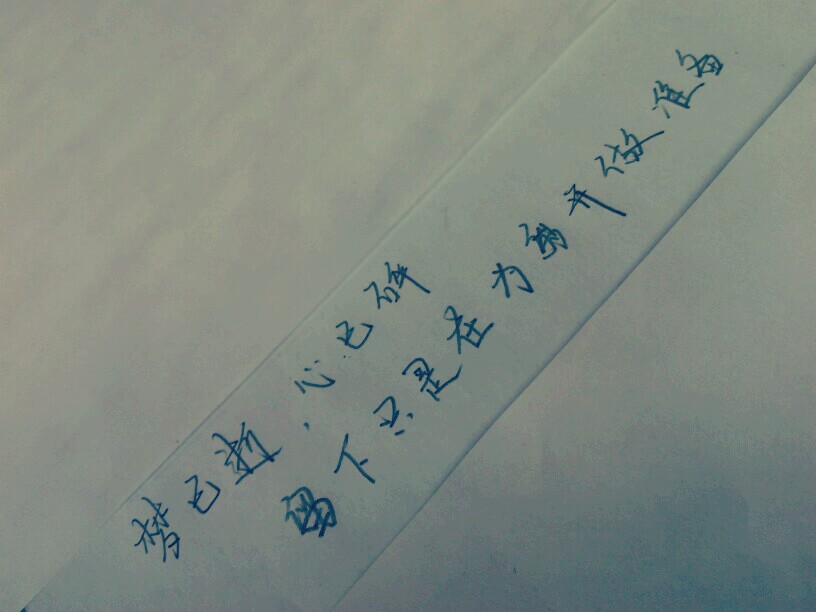 梦已逝，心已碎
留下只是在为离开做准备